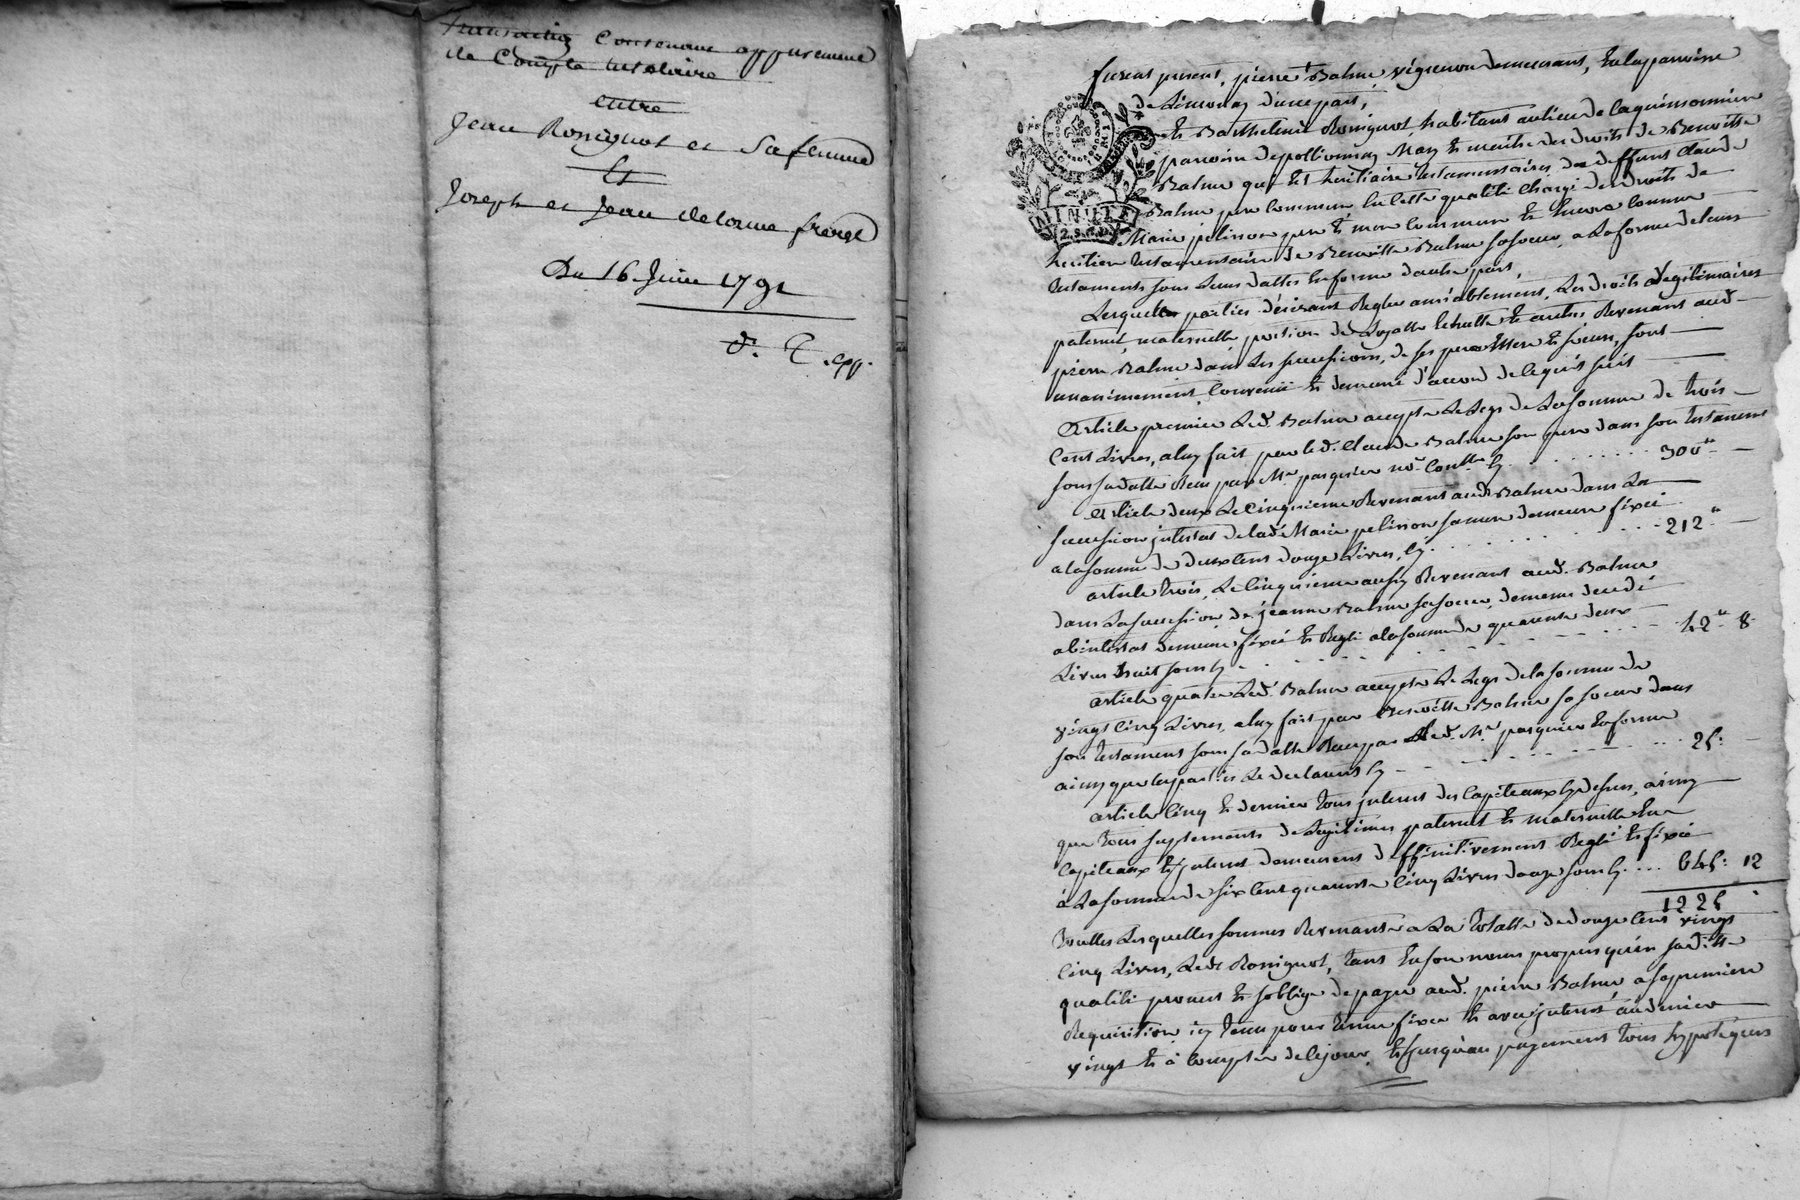 Transaction Contenant appurement
de Compte tutelaire
entre
Jean Ronignot et Sa femme
Et
Joseph et Jean delorme freres
Du 16 Juin 1791
d. E. exp.
furent present, pierre Balme vigneron demeurant, en la parroisse
de Limonay d'une part,
Et Barthelemie Ronignot habitant au lieu de la quinsonniere
parroisse de pollionnay Mary et maitre des droits de Benoitte
Balme qui est heritiere testamentaire de deffunt Claude
Balme pere commun en cette qualité chargé des droits de
Marie pelisson mere commune et encore comme
heritier testamentaire de Benoitte Balme sa soeur, a la forme de leurs
testaments sous leurs dattes en forme d'autre part,
Lesquelles parties désirant Regler amiablement, Les droits Legitimaires
paternel, maternelle portion de et autres Revenant aud.
pierre Balme dans les successions, de ses pere Mere et soeurs, sont
unanimement Convenus et demeuré d'accord de ce qui suit
Article premier Led. Balme accepte Le Legs de La somme de trois
Cent Livres, a luy fait par led. Claude Balme son pere dans son testament
sous sa datte Reçu par Me. pasquier nore. Cy 300"
Article deux Le Cinquieme Revenant aud. Balme dans La
succession intestat de lad. Marie pelisson sa mere demeure fixée
a la somme de deux Cent douze Livres, Cy 212"
article trois, Le Cinquieme aussy Revenant aud. Balme
dans La succession de jeanne Balme sa soeur, décédé
ab intestat demeure fixé et Reglé a la somme de quarante deux
Livres huit sous Cy 42" 8
article quatre Led. Balme accepte Le Legs de la somme de
vingt Cinq Livres, a luy fait par Benoitte Balme sa soeur dans
son testament sous sa datte Reçu par Led. Me. pasquier en forme
ainsy que les parties Le declarent Cy 25:
article Cinq et dernier tous interets des Capiteaux Cy dessus, ainsy
que tous suplements de Legitimes paternel et maternelle en
Capiteaux et interets demeurent deffinitivement Reglé et fixée
à La somme de six Cent quarante Cinq Livres douze sous Cy 645: 12
1225
Toutes Lesquelles sommes Revenante a La totalle de douze Cent vingt
Cinq Livres, Led. Ronignot, tant en son nom propre qu'en sad. ditte
qualité promet et s'oblige de payer aud. pierre Balme a sa premiere
Requisition icy tenu pour terme fixe et avec interest au denier
vingt et à Compter de ce jour, et jusqu'au payement tous hypotèques
MINUTE